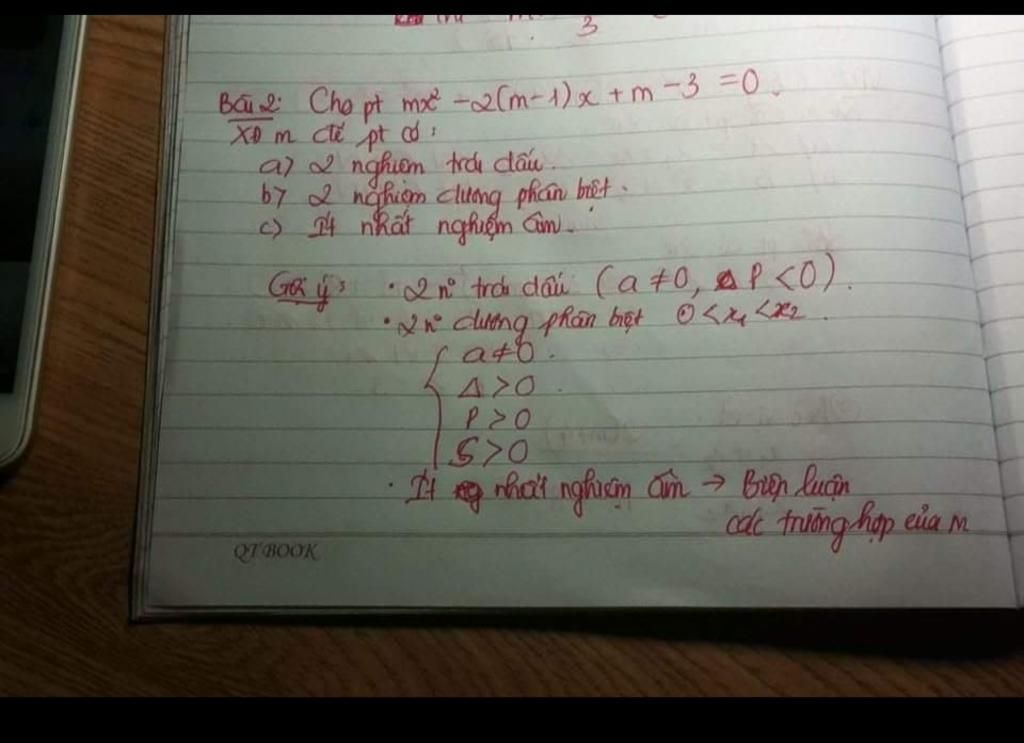 3
Bài 2: Cho pt mx² - 2(m-1)x + m - 3 = 0.
XĐ m để pt có:
a) 2 nghiệm trái dấu.
b) 2 nghiệm dương phân biệt.
c) Ít nhất nghiệm âm.
Gợi ý: · 2 n⁰ trái dấu (a ≠ 0, P < 0).
· 2 n⁰ dương phân biệt 0 < x₁ < x₂.
a ≠ 0.
Δ > 0.
P > 0
S > 0
· Ít nhất nghiệm âm → Biện luận
các trường hợp của m
QT BOOK